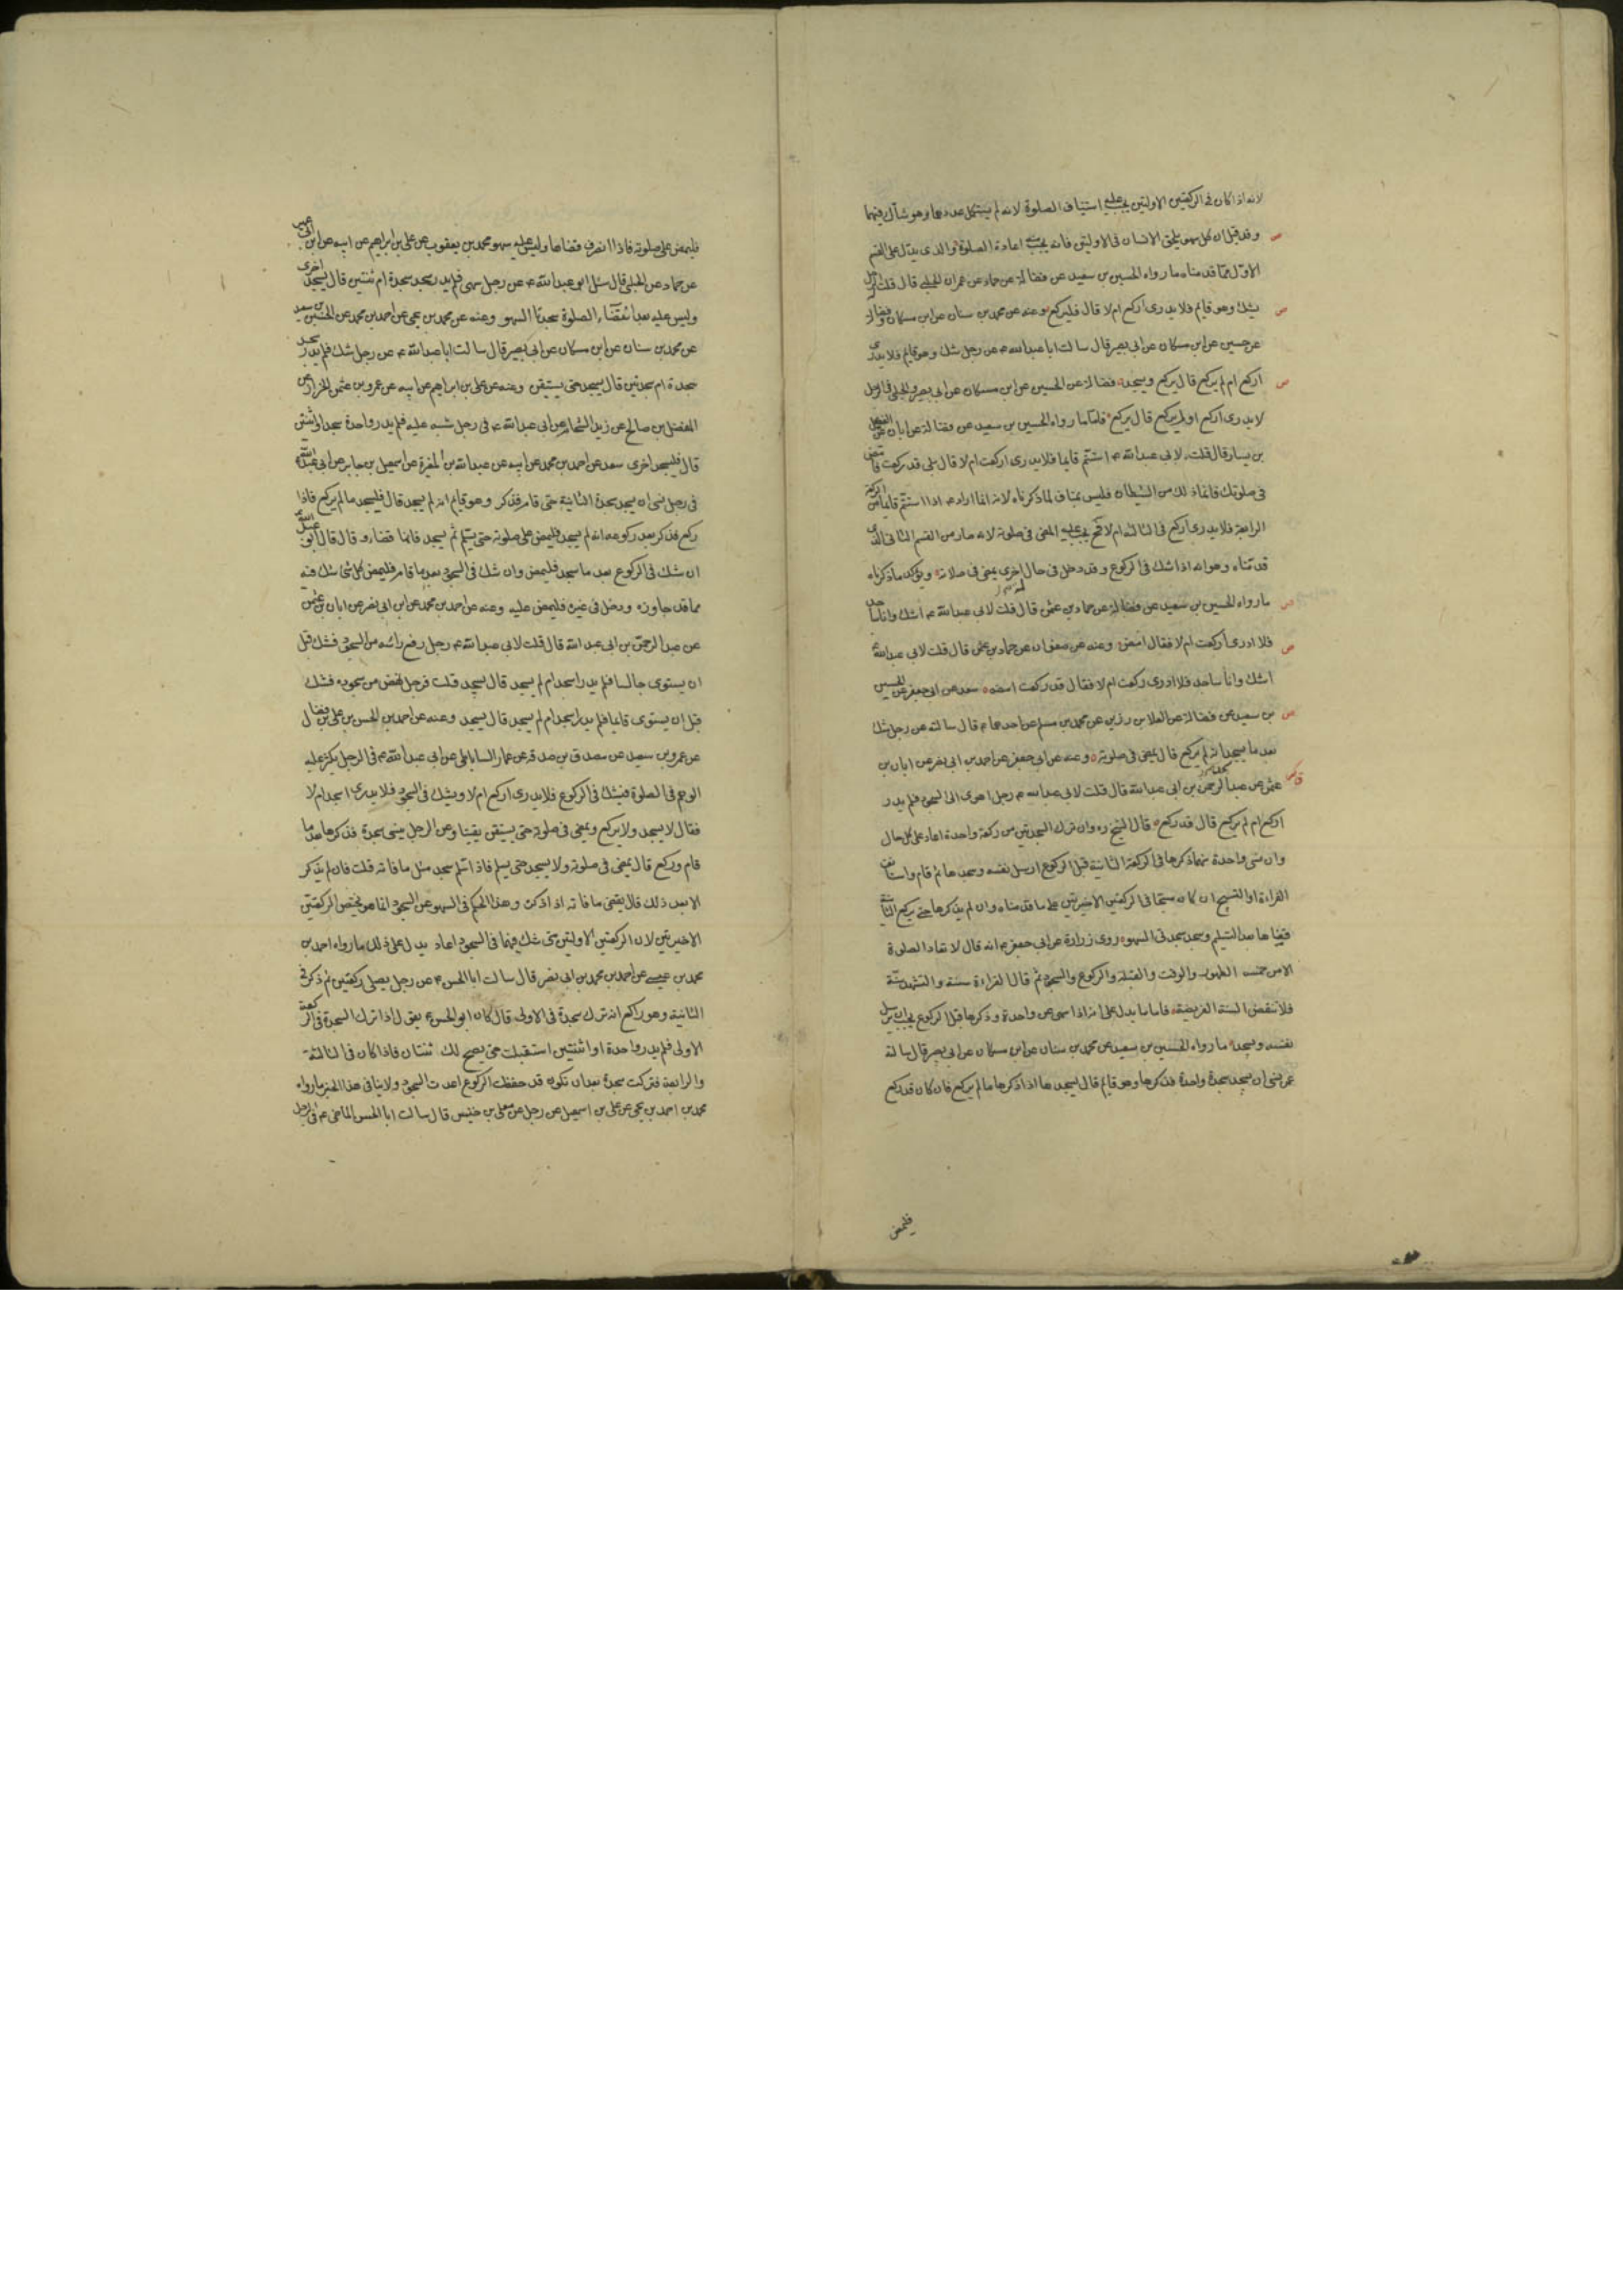 لانه اذا كان فى الركعتين الاولتين يجب عليه استيناف الصلوة لانه لم يستكمل عددهما وهو شاك فيهما
وقد قيل ان كل سهو يلحق الانسان فى الاولتين فانه يجب منه اعادة الصلوة والذى يدل على القسم
الاول مما قدمناه ما رواه الحسين بن سعيد عن فضالة عن حماد عن عمران الحلبى قال قلت الرجل
يشك وهو قايم فلا يدرى اركع ام لا قال فليركع وعنه عن محمد بن سنان عن ابن مسكان وفضالة
عن حسين عن ابن مسكان عن ابى بصير قال سالت ابا عبد الله ع عن رجل شك وهو قايم فلا يدرى
اركع ام لم يركع قال يركع ويسجد فضالة عن الحسين عن ابن مسكان عن ابى بصير والحلبى فى الرجل
لا يدرى اركع او لم يركع قال يركع فاما ما رواه الحسين بن سعيد عن فضالة عن ابان عن الفضيل
بن يسار قال قلت لابى عبد الله ع استتم قايما فلا يدرى اركعت ام لا قال بلى قد ركعت فامض
فى صلوتك فانما ذلك من الشيطان فليس بمناف لما ذكرناه لانه انما اراد ع اذا استتم قايما من الركعة
الرابعة فلا يدرى اركع فى الثالثة ام لا فح يجب عليه المضى فى صلوته لانه صار من القسم الثانى الذى
قدمناه وهو انه اذا شك فى الركوع وقد دخل فى حال اخرى يمضى فى صلاته ويؤكد ما ذكرناه
ما رواه الحسين بن سعيد عن فضالة عن حماد بن عثمن قال قلت لابى عبد الله ع اشك وانا ساجد
فلا ادرى اركعت ام لا فقال امض وعنه عن صفوان عن حماد بن عثمن قال قلت لابى عبد الله ع
اشك وانا ساجد فلا ادرى ركعت ام لا فقال قد ركعت امضه سعد عن ابى جعفر عن الحسين
بن سعيد عن فضالة عن العلا بن رزين عن محمد بن مسلم عن احدهما ع قال سالته عن رجل شك
بعد ما سجد انه لم يركع قال يمضى فى صلوته وعنه عن ابى جعفر عن احمد بن ابى نصر عن ابان بن
عثمن عن عبد الرحمن بن ابى عبد الله قال قلت لابى عبد الله ع رجل اهوى الى السجود فلم يدر
اركع ام لم يركع قال قد ركع قال الشيخ ره وان ترك السجدتين من ركعة واحدة اعاد على كل حال
وان نسى واحدة منهما ذكرها فى الركعة الثانية قبل الركوع ارسل نفسه وسجدها ثم قام واستانف
القراءة او التسبيح ان كان مسبحا فى الركعتين الاخيرتين على ما قدمناه وان لم يذكرها حتى يركع الثانية
قضاها بعد التسليم وسجد سجدتى السهو روى زرارة عن ابى جعفر ع انه قال لا تعاد الصلوة
الا من خمسة الطهور والوقت والقبلة والركوع والسجود ثم قال القراءة سنة والتشهد سنة
فلا تنقض السنة الفريضة فاما ما يدل على انه اذا سهى عن واحدة وذكرها قبل الركوع يجب ان يرسل
نفسه ويسجد ما رواه الحسين بن سعيد عن محمد بن سنان عن ابن مسكان عن ابى بصير قال سالته
عمن نسى ان يسجد سجدة واحدة فذكرها وهو قايم قال يسجدها اذا ذكرها ما لم يركع فان كان قد ركع
فليمض
فليمض على صلوته فاذا انصرف قضاها وليس عليه سهو محمد بن يعقوب عن على بن ابراهيم عن ابيه عن ابن ابى عمير
عن حماد عن الحلبى قال سئل ابو عبد الله ع عن رجل سهى فلم يدر سجد سجدة ام ثنتين قال يسجد اخرى
وليس عليه بعد انقضاء الصلوة سجدتا السهو وعنه عن محمد بن يحيى عن احمد بن محمد عن الحسين بن سعيد
عن محمد بن سنان عن ابن مسكان عن ابى بصير قال سالت ابا عبد الله ع عن رجل شك فلم يدر سجد
سجدة ام سجدتين قال يسجد حتى يستيقن وعنه عن على بن ابراهيم عن ابيه عن عمرو بن عثمن الخزاز عن
المفضل بن صالح عن زيد الشحام عن ابى عبد الله ع فى رجل شبه عليه فلم يدر واحدة سجد او ثنتين
قال فليسجد اخرى سعد عن احمد بن محمد عن ابيه عن عبد الله بن المغيرة عن اسمعيل بن جابر عن ابى عبد الله ع
فى رجل نسى ان يسجد سجدة الثانية حتى قام فذكر وهو قايم انه لم يسجد قال فليسجد ما لم يركع فاذا
ركع فذكر بعد ركوعه انه لم يسجد فليمض على صلوته حتى يسلم ثم يسجد فانها قضاء وقال قال ابو عبد الله ع
ان شك فى الركوع بعد ما سجد فليمض وان شك فى السجود بعد ما قام فليمض كل شئ شك فيه
مما قد جاوزه ودخل فى غيره فليمض عليه وعنه عن احمد بن محمد عن ابن ابى نصر عن ابان بن عثمن
عن عبد الرحمن بن ابى عبد الله قال قلت لابى عبد الله ع رجل رفع راسه من السجود فشك قبل
ان يستوى جالسا فلم يدر اسجد ام لم يسجد قال يسجد قلت فرجل نهض من سجوده فشك
قبل ان يستوى قايما فلم يدر اسجد ام لم يسجد قال يسجد وعنه عن احمد بن الحسن بن على بن فضال
عن عمرو بن سعيد عن مصدق بن صدقة عن عمار الساباطى عن ابى عبد الله ع فى الرجل يكثر عليه
الوهم فى الصلوة فيشك فى الركوع فلا يدرى اركع ام لا ويشك فى السجود فلا يدرى اسجد ام لا
فقال لا يسجد ولا يركع ويمضى فى صلوته حتى يستيقن يقينا وعن الرجل ينسى سجدة فذكرها بعد ما
قام وركع قال يمضى فى صلوته ولا يسجد حتى يسلم فاذا سلم سجد مثل ما فاته قلت فان لم يذكر
الا بعد ذلك قال يقضى ما فاته اذا ذكره وهذا الحكم فى السهو عن السجود انما هو يختص الركعتين
الاخيرتين لان الركعتين الاولتين متى شك فيهما فى السجود اعاد يدل على ذلك ما رواه احمد بن
محمد بن عيسى عن احمد بن محمد بن ابى نصر قال سالت ابا الحسن ع عن رجل يصلى ركعتين ثم ذكر فى
الثانية وهو راكع انه ترك سجدة فى الاولى قال كان ابو الحسن ع يقول اذا ترك السجدة فى الركعة
الاولى فلم يدر واحدة او اثنتين استقبلت حتى يصح لك ثنتان فاذا كان فى الثالثة
والرابعة فتركت سجدة بعد ان تكون قد حفظت الركوع اعدت السجود ولا ينافى هذا الخبر ما رواه
محمد بن احمد بن يحيى عن على بن اسمعيل عن رجل عن معلى بن خنيس قال سالت ابا الحسن الماضى ع فى الرجل